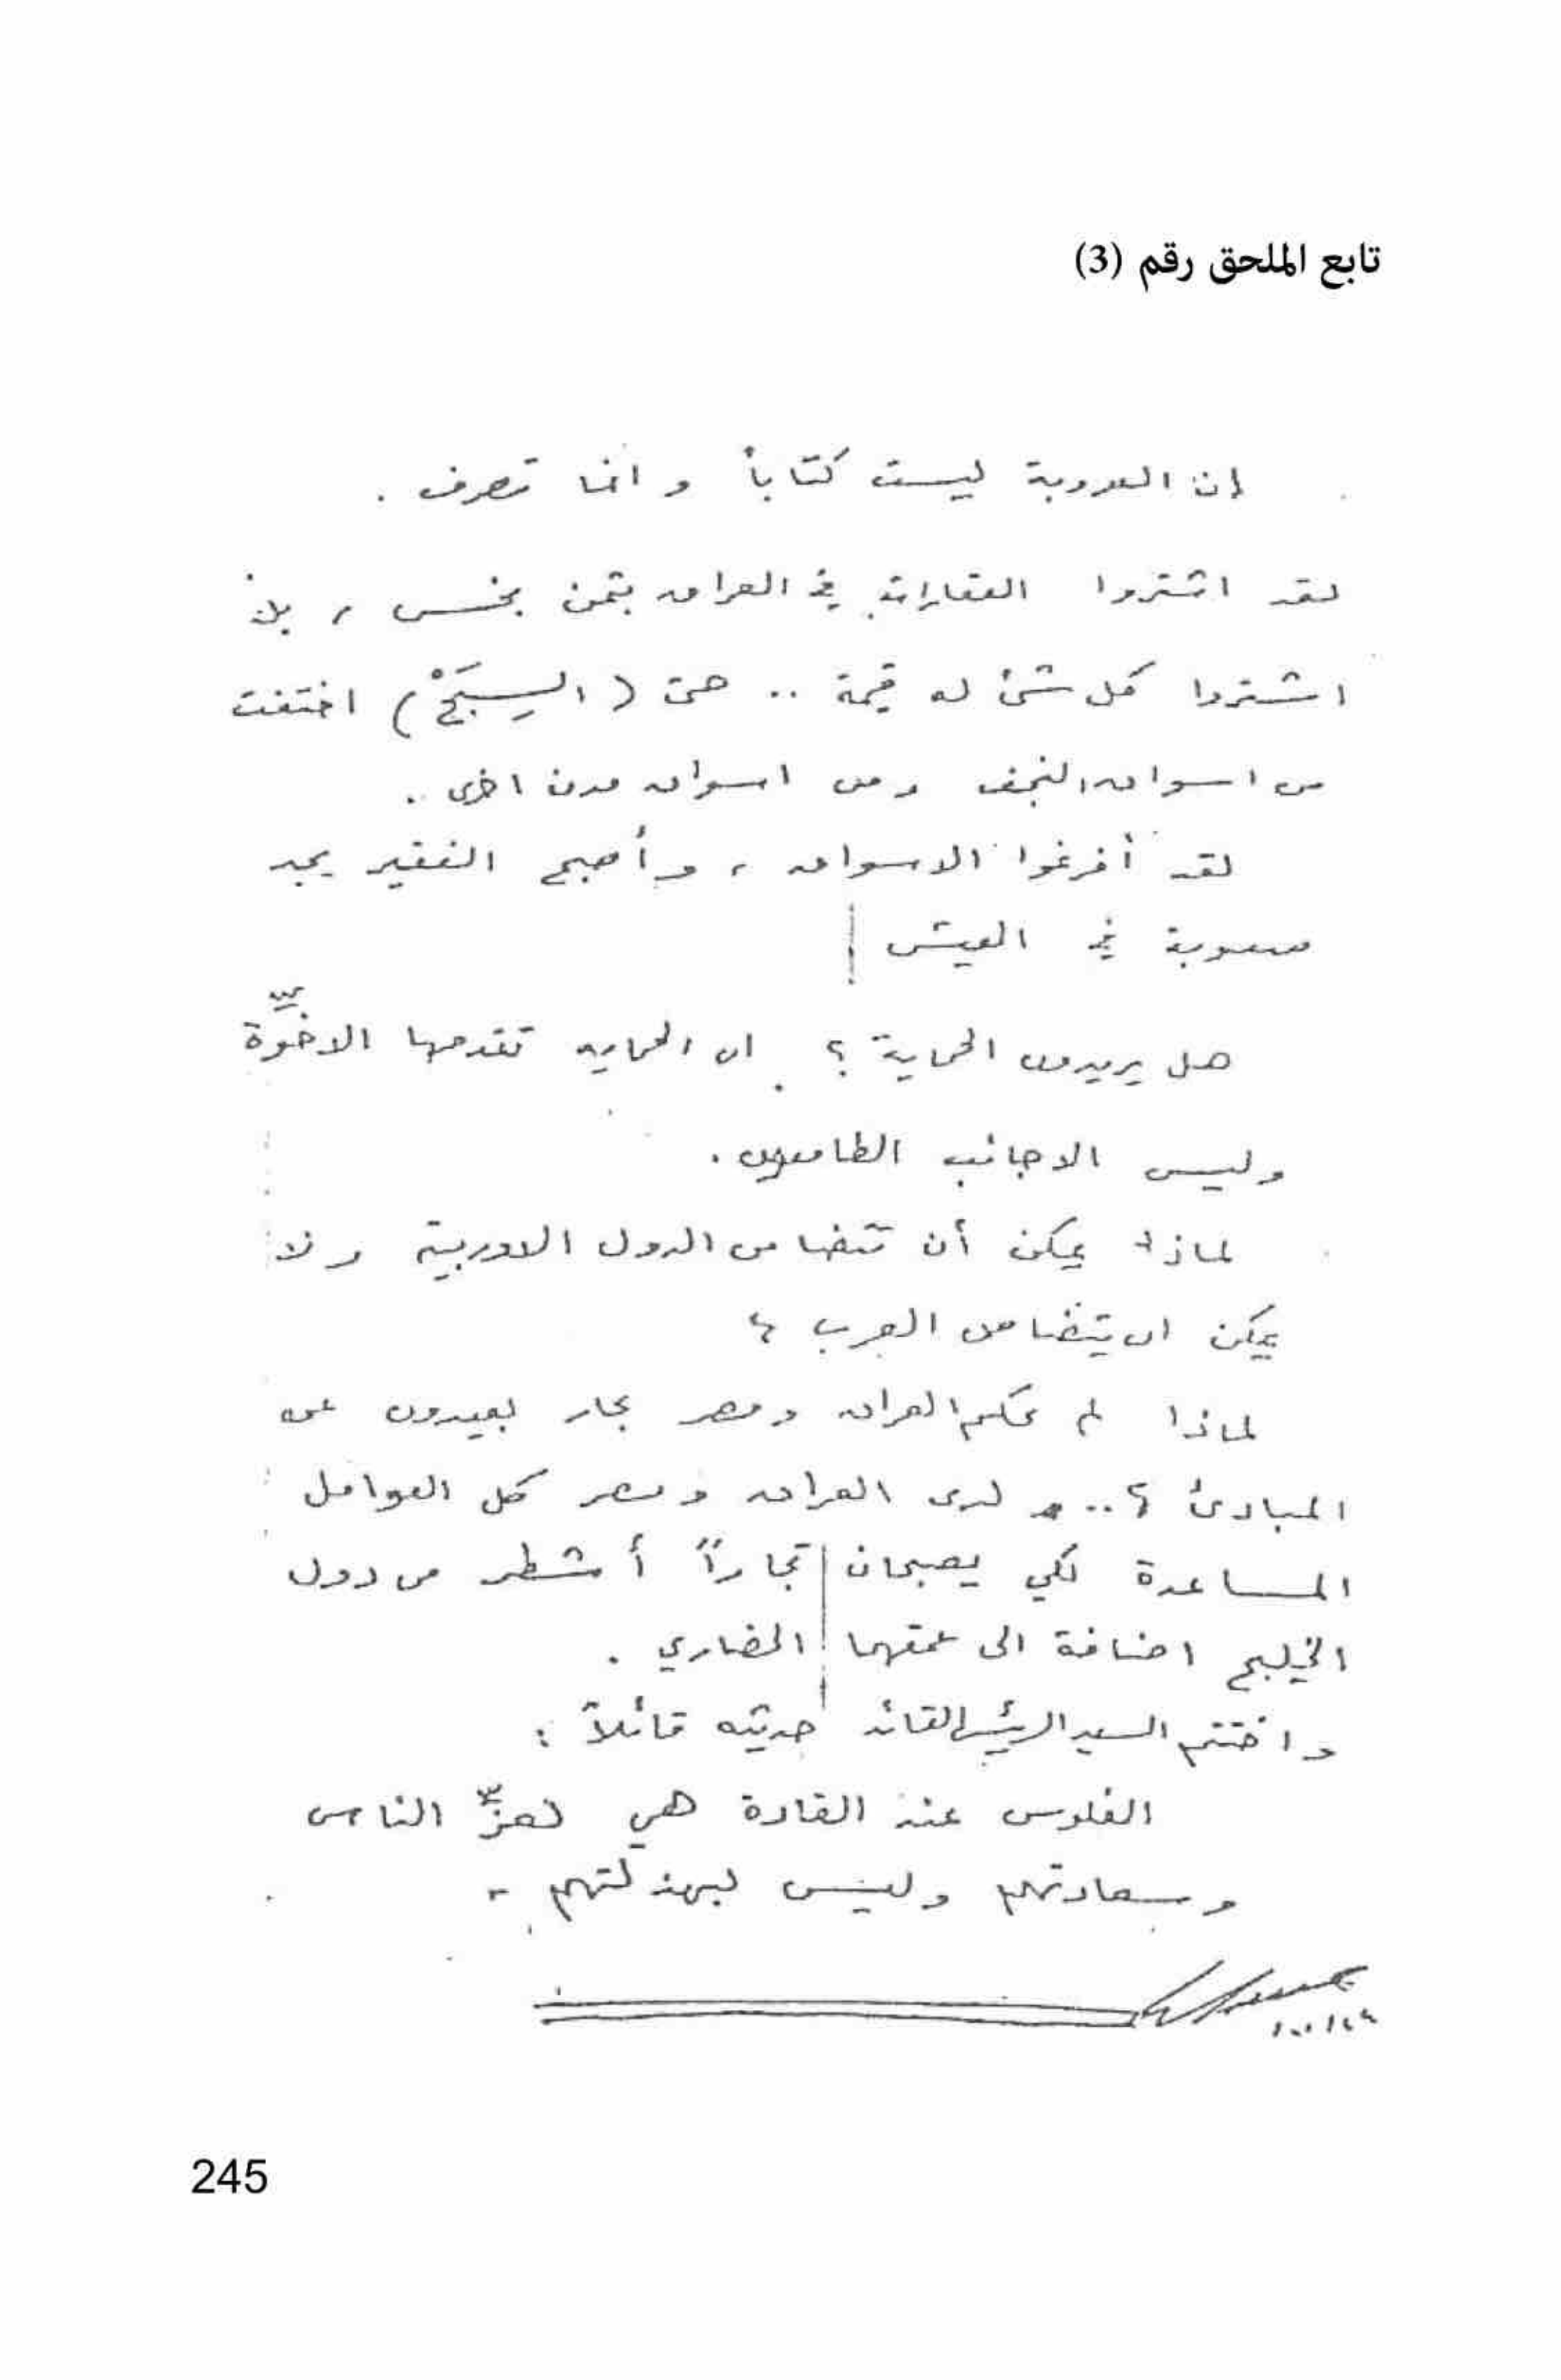 تابع الملحق رقم (3)
إن العروبة ليست كتاباً وانما تصرف .
لقد اشتروا العقارات في العراق بثمن بخس ،
اشتروا كل شئ له قيمة .. حتى (السِبَحْ) اختفت
من اسواق النجف ومن اسواق مدن اخرى .
لقد أفرغوا الاسواق ، وأصبح الفقير يجد
صعوبة في العيش !
هل يريدون الحماية ؟ ان الحماية تقدمها الاخوّة
وليس الاجانب الطامعون .
لماذا يمكن أن تتضامن الدول الاوربية ولا
يمكن ان يتضامن العرب ؟
لماذا لم يحكم العراق ومصر تجار بعيدون عن
المبادئ ؟ .. لدى العراق ومصر كل العوامل
المساعدة لكي يصبحان تجاراً أشطر من دول
الخليج اضافة الى عمقهما الحضاري .
واختتم السيد الرئيس القائد حديثه قائلاً :
الفلوس عند القادة هي لعزّ الناس
وسعادتهم وليس لبهذلتهم -
245